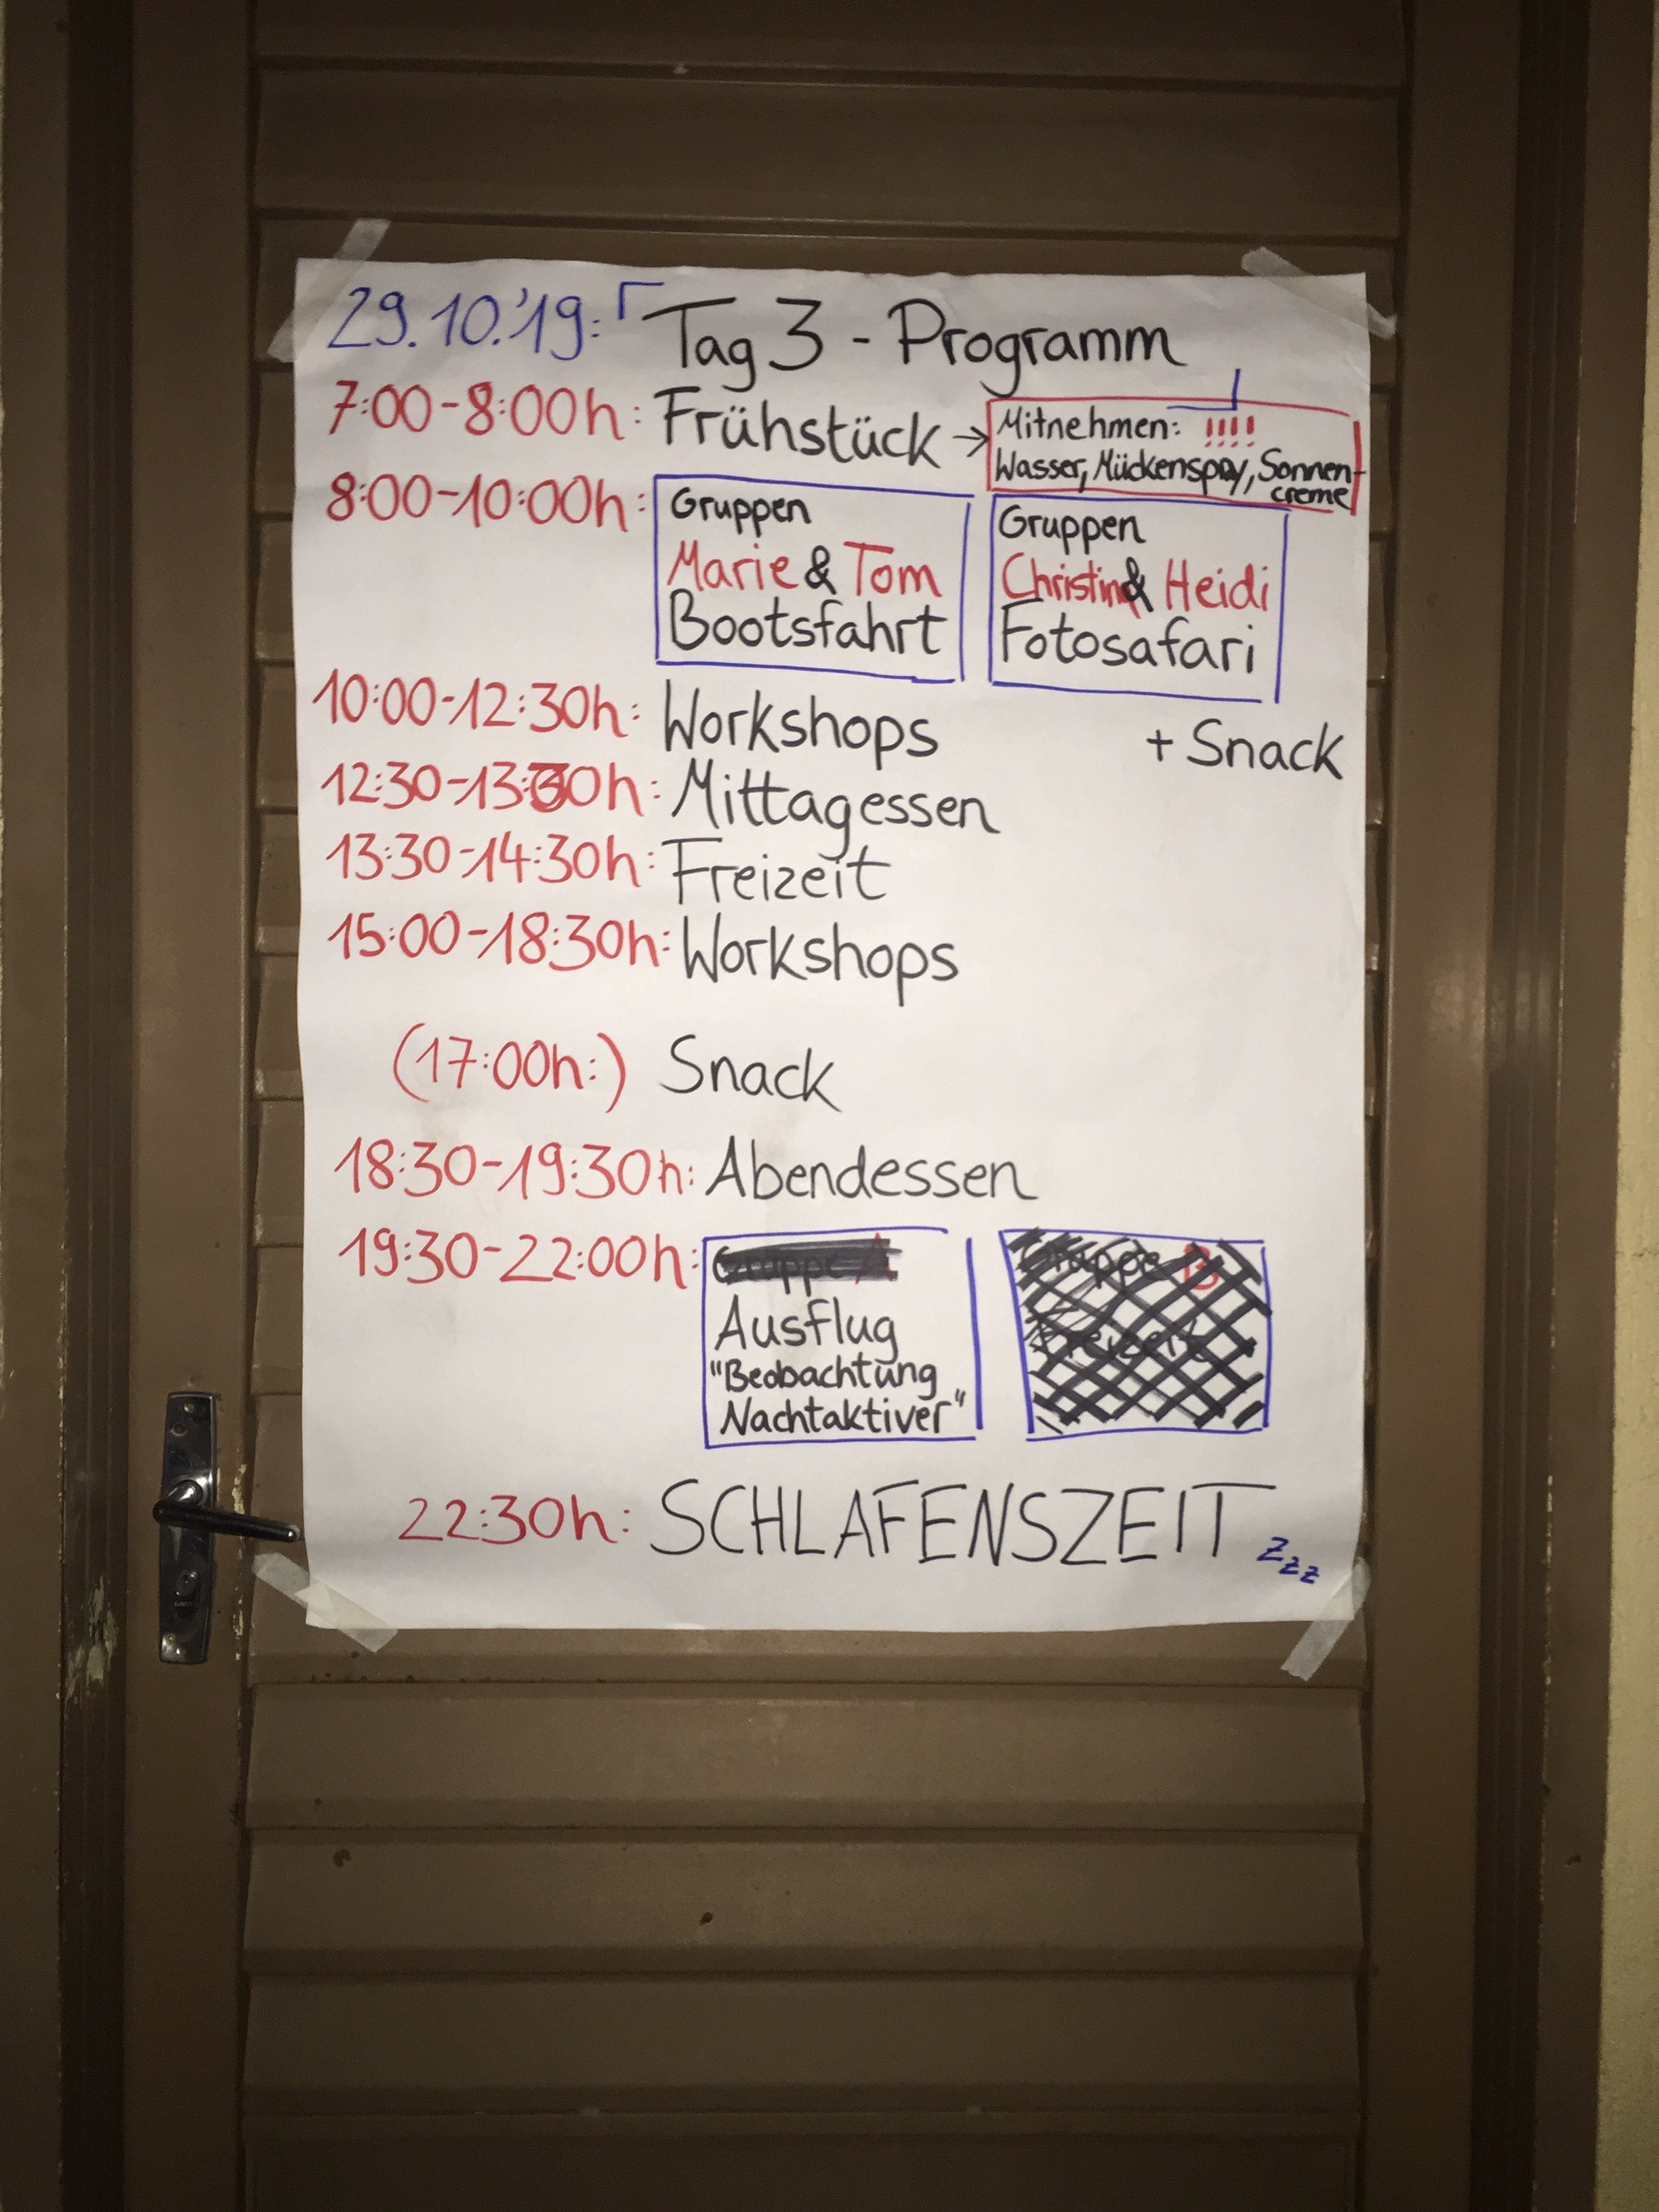 29.10.'19: Tag 3 - Programm
7:00-8:00h: Frühstück → Mitnehmen: !!!!
Wasser, Mückenspray, Sonnen-
creme
8:00-10:00h:
Gruppen
Marie & Tom
Bootsfahrt
Gruppen
Christin & Heidi
Fotosafari
10:00-12:30h: Workshops + Snack
12:30-13:30h: Mittagessen
13:30-14:30h: Freizeit
15:00-18:30h: Workshops
(17:00h:) Snack
18:30-19:30h: Abendessen
19:30-22:00h:
Gruppe A
Ausflug
"Beobachtung
Nachtaktiver"
Gruppe B
22:30h: SCHLAFENSZEIT zzz